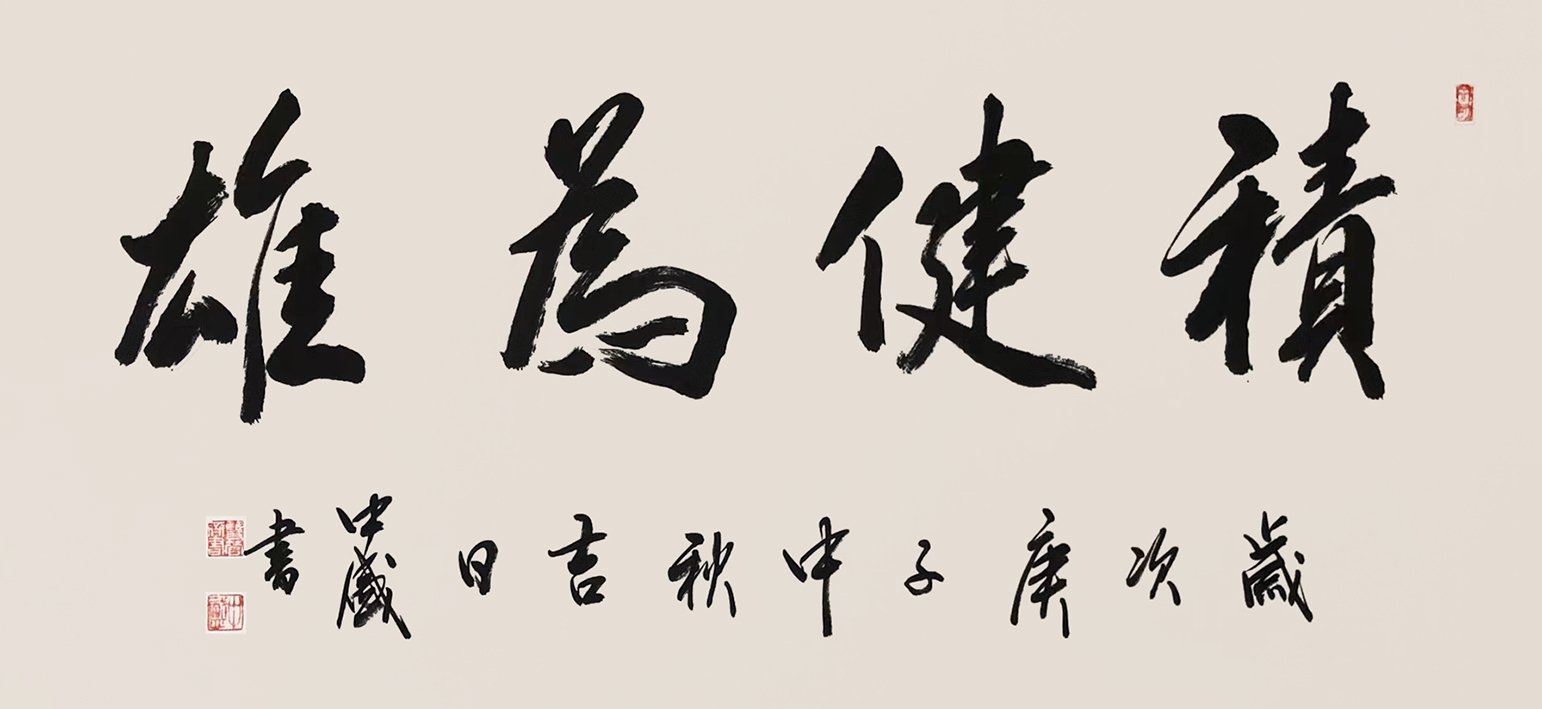 積健為雄
歲次庚子中秋吉日中歲書